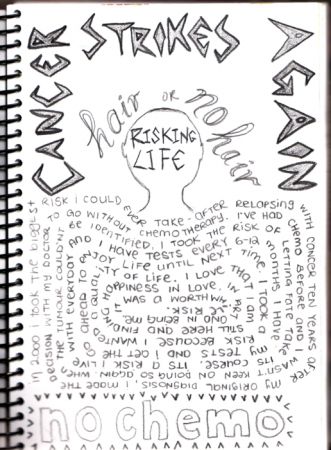 CANCER STRIKES AGAIN
hair OR no hair
RISKING
LIFE
IN 2000 I TOOK THE BIGGEST
RISK I COULD EVER TAKE - AFTER RELAPSING
WITH CANCER TEN YEARS AFTER
MY ORIGINAL DIAGNOSIS, I MADE THE
DECISION WITH MY DOCTOR
TO GO WITHOUT CHEMOTHERAPY. I'VE HAD
CHEMO BEFORE AND I WASN'T
KEEN ON DOING SO AGAIN WHEN
THE TUMOUR COULDN'T
BE IDENTIFIED. I TOOK THE RISK OF
LETTING FATE TAKE
ITS COURSE. ITS A RISK I LIVE
WITH EVERYDAY AND
I HAVE TESTS EVERY 6-12
MONTHS. I HAVE
MY TESTS AND I GET THE
GO AHEAD TO ENJOY
LIFE UNTIL NEXT TIME.
I TOOK A
RISK BECAUSE I WANTED
A QUALITY OF LIFE.
I LOVE THAT I AM
STILL HERE AND FINDING
HAPPINESS IN LOVE, IN ART
AND IN BEING ME.
IT WAS A WORTHWHILE
RISK.
no chemo